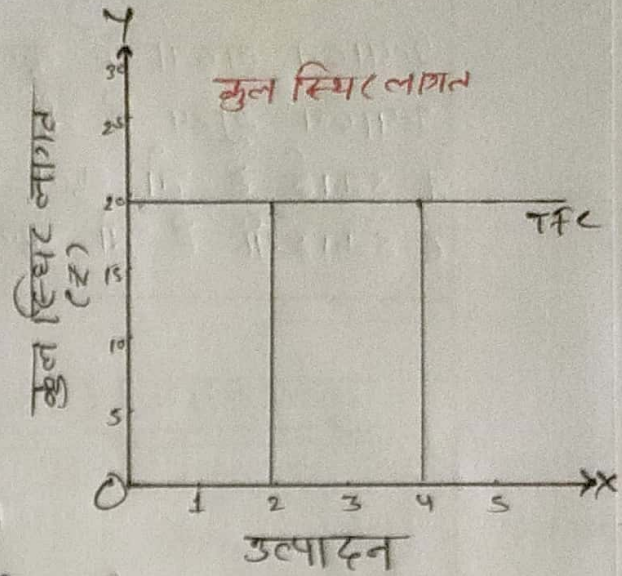 Y
कुल स्थिर लागत
30
25
20
TFC
15
10
5
कुल स्थिर लागत
(₹)
O
1 2 3 4 5
X
उत्पादन